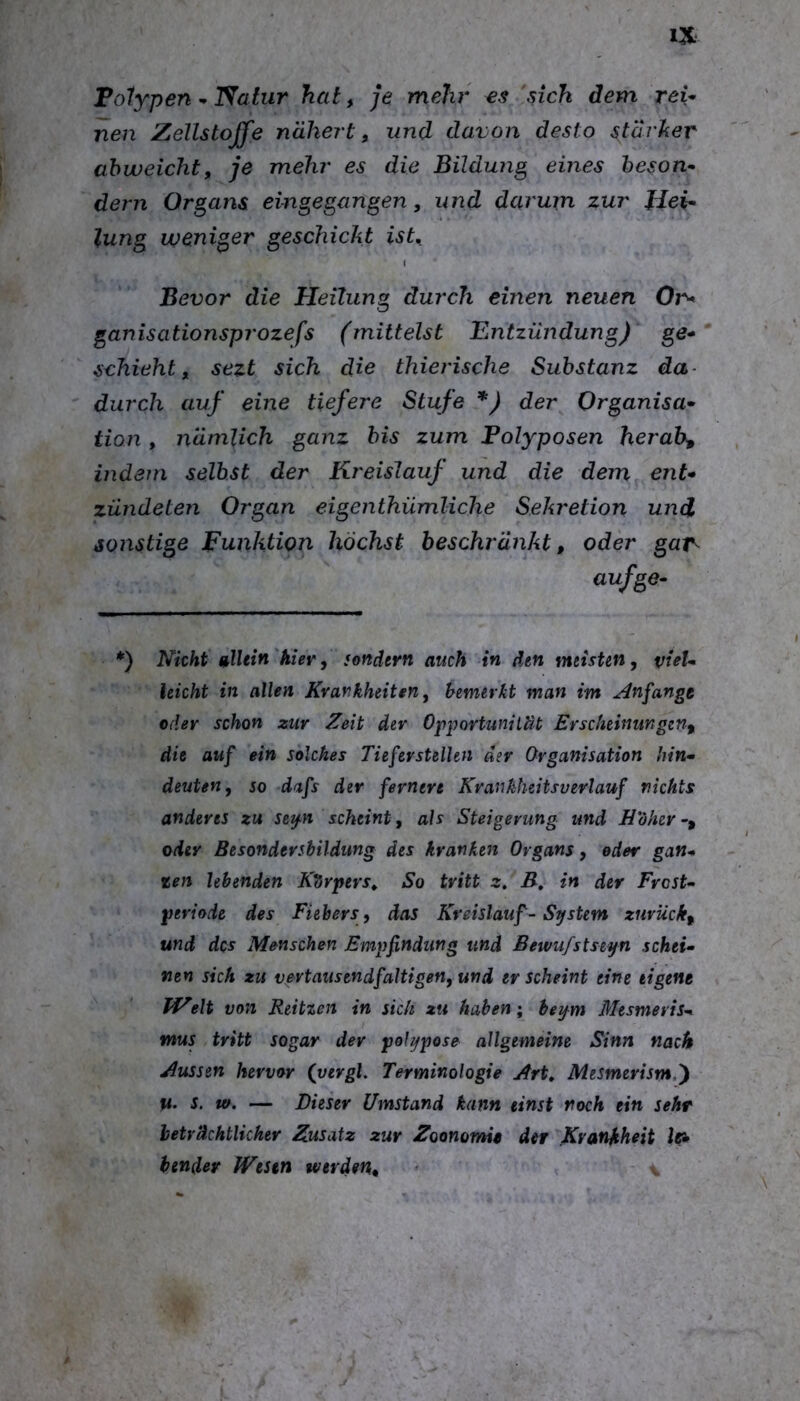 IX
Polypen-Natur hat, je mehr es sich dem rei-
nen Zellstoffe nähert, und davon desto stärker
abweicht, je mehr es die Bildung eines beson-
dern Organs eingegangen, und darum zur Hei-
lung weniger geschickt ist.
Bevor die Heilung durch einen neuen Or-
ganisationsprozefs (mittelst Entzündung) ge-
schieht, sezt sich die thierische Substanz da-
durch auf eine tiefere Stufe *) der Organisa-
tion, nämlich ganz bis zum Polyposen herab,
indem selbst der Kreislauf und die dem ent-
zündeten Organ eigenthümliche Sekretion und
sonstige Funktion höchst beschränkt, oder gar
aufge-
*) Nicht allein hier, sondern auch in den meisten, viel-
leicht in allen Krankheiten, bemerkt man im Anfange
oder schon zur Zeit der Opportunität Erscheinungen,
die auf ein solches Tieferstellen der Organisation hin-
deuten, so dafs der fernere Krankheitsverlauf nichts
anderes zu seyn scheint, als Steigerung und Höher-,
oder Besondersbildung des kranken Organs, oder gan-
zen lebenden Körpers. So tritt z. B. in der Frost-
periode des Fiebers, das Kreislauf-System zurück,
und des Menschen Empfindung und Bewufstseyn schei-
nen sich zu vertausendfaltigen, und er scheint eine eigene
Welt von Reitzen in sich zu haben; beym Mesmeris-
mus tritt sogar der polypose allgemeine Sinn nach
Aussen hervor (vergl. Terminologie Art. Mesmerism.)
u. s. w. — Dieser Umstand kann einst noch ein sehr
beträchtlicher Zusatz zur Zoonomie der Krankheit le-
bender Wesen werden.